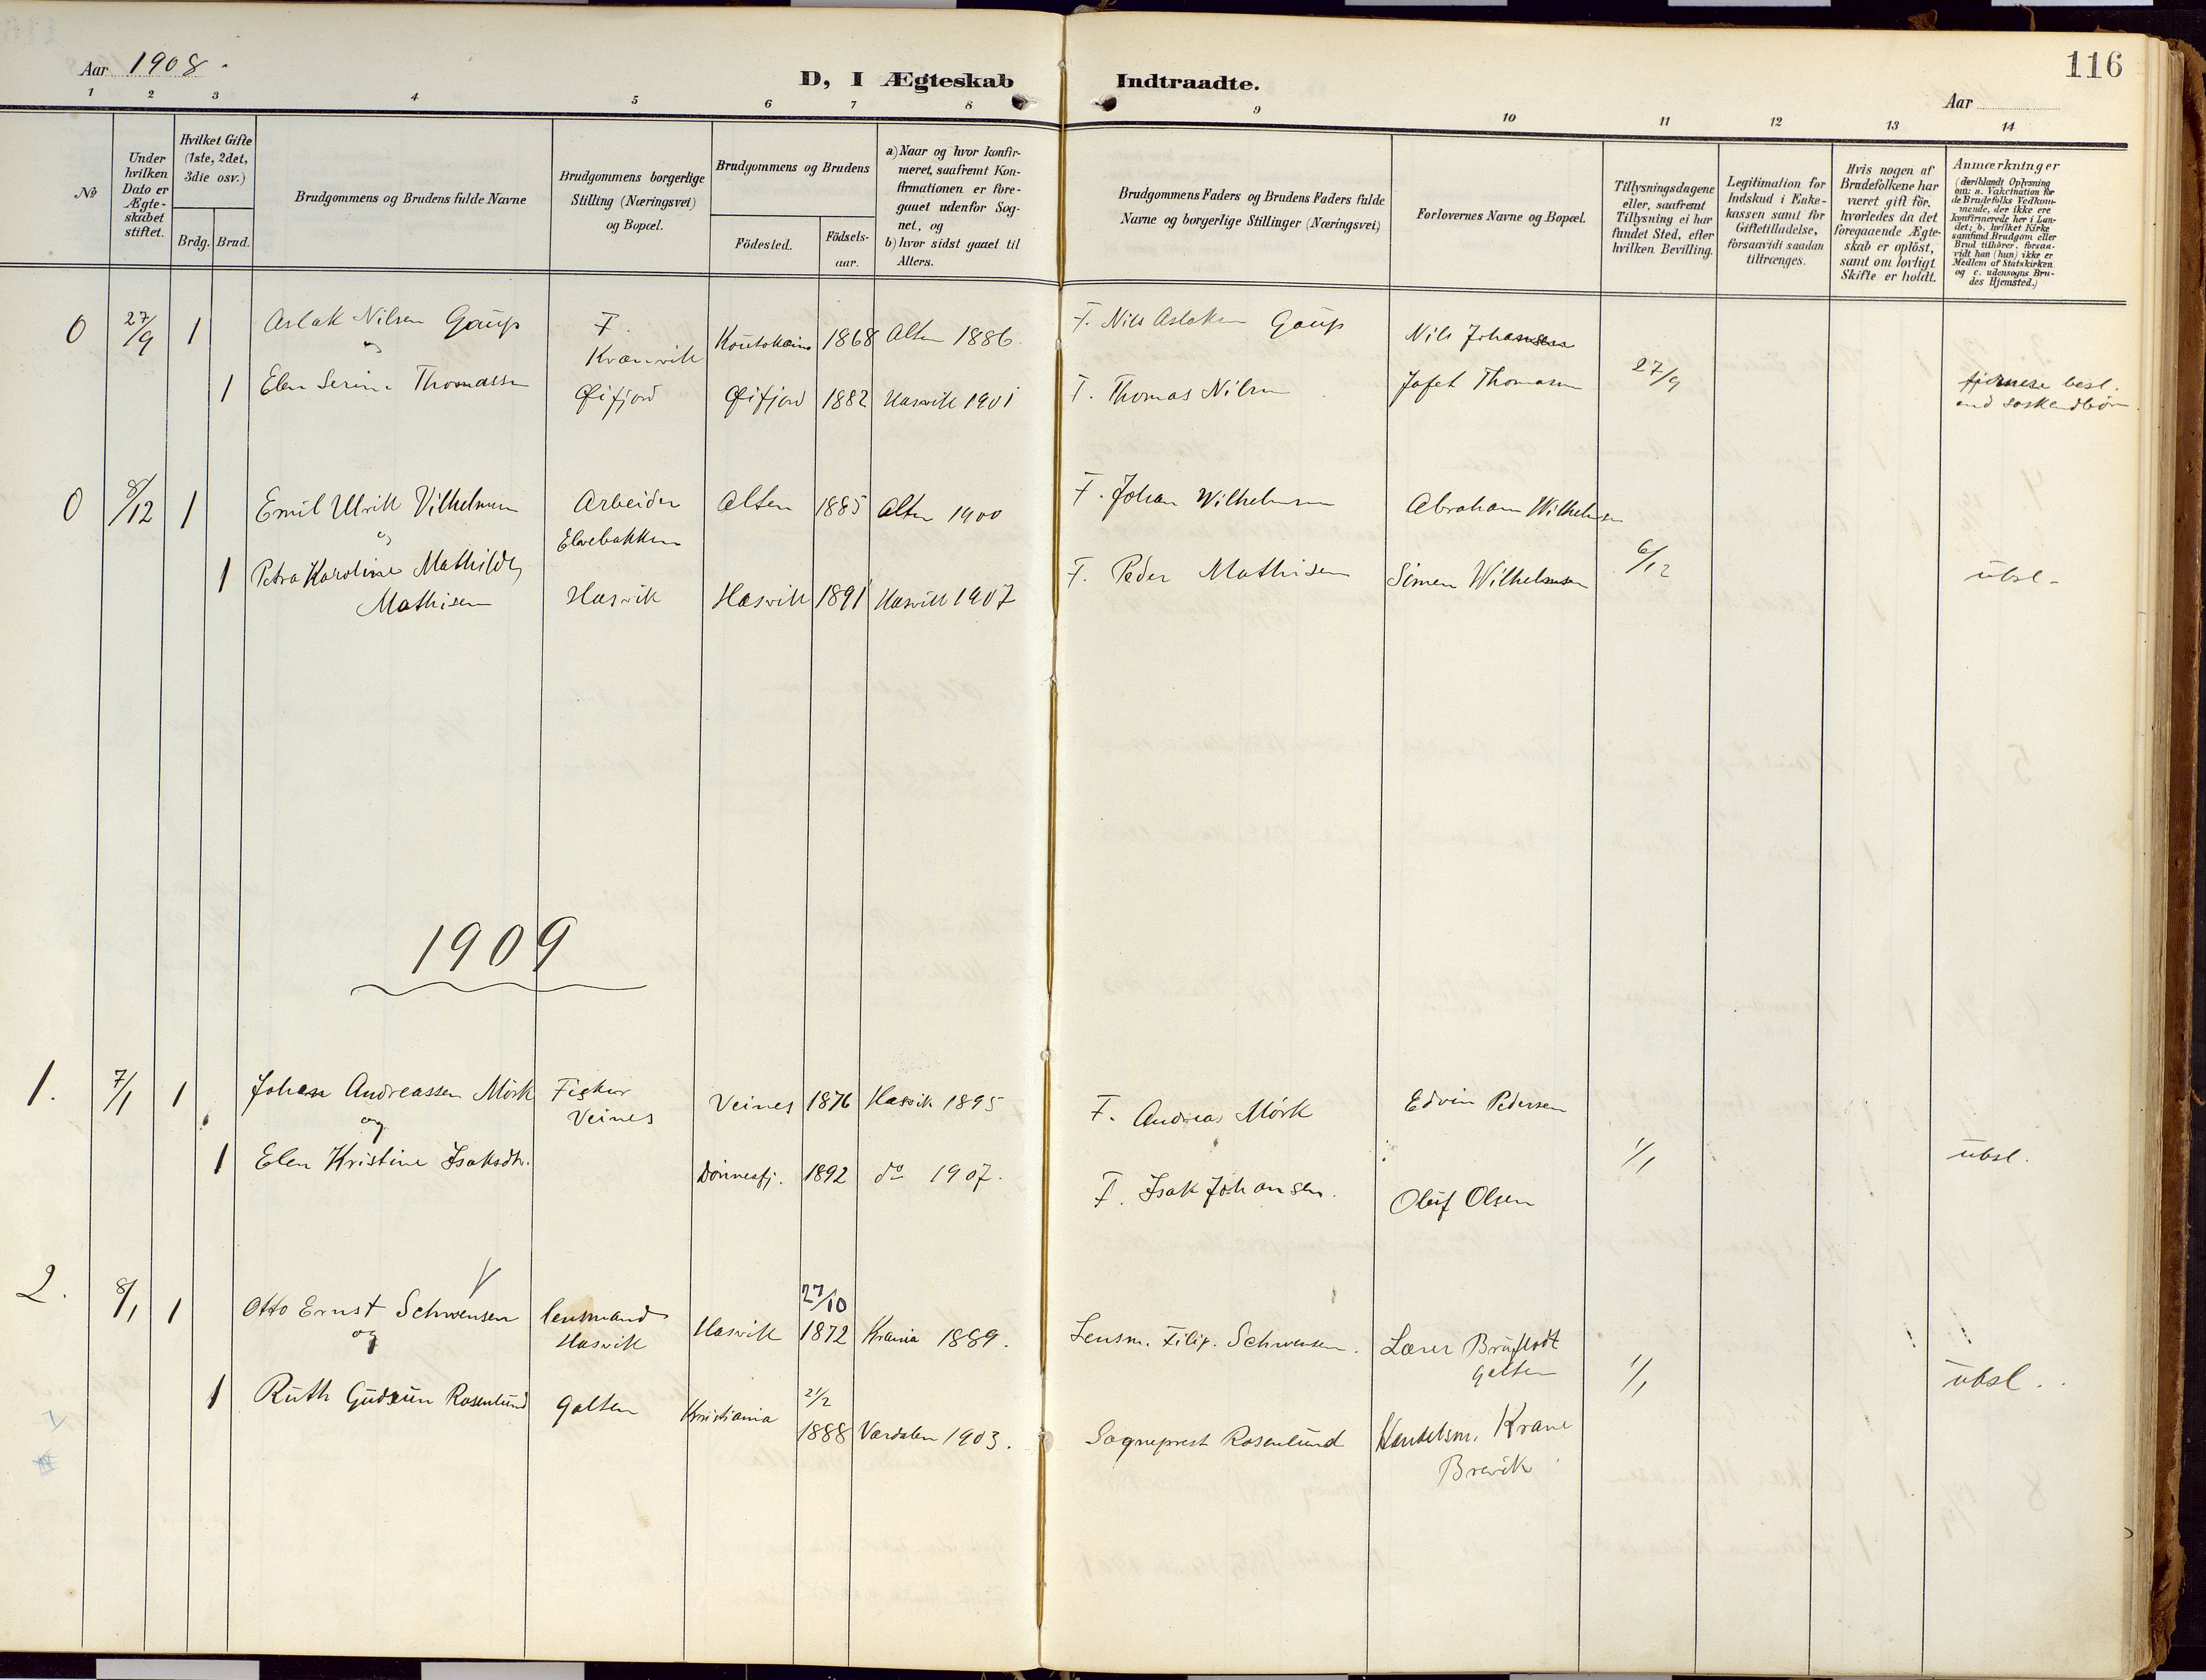 116
Aar 1908.
D, I Ægteskab Indtraadte.
Aar
1 2 3 4 5 6 7 8 9 10 11 12 13 14
№
Under hvilken Dato er Ægte-skabet stiftet.
Hvilket Gifte (1ste, 2det, 3die osv.)
Brdg. Brud.
Brudgommens og Brudens fulde Navne
Brudgommens borgerlige Stilling (Næringsvei) og Bopæl.
Brudgommens og Brudens
Födested. Födsels-aar.
a) Naar og hvor konfir-meret, saafremt Kon-firmationen er fore-gaaet udenfor Sog-net, og
b) hvor sidst gaaet til Alters.
Brudgommens Faders og Brudens Faders fulde Navne og borgerlige Stillinger (Næringsvei)
Forlovernes Navne og Bopæl.
Tillysningsdagene eller, saafremt Tillysning ei har fundet Sted, efter hvilken Bevilling.
Legitimation for Indskud i Enke-kassen samt for Giftetilladelse, forsaavidt saadan tiltrænges.
Hvis nogen af Brudefolkene har været gift för, hvorledes da det foregaaende Ægte-skab er oplöst, samt om lovligt Skifte er holdt.
Anmærkninger
(deriblandt Oplysning om: a. Vakcination for de Brudefolks Vedkom-mende, der ikke ere konfirmerede her i Lan-det; b. hvilket Kirke samfund Brudgom eller Brud tilhörer, forsaa-vidt han (hun) ikke er Medlem af Statskirken og c. udensogns Bru-des Hjemsted.)
0 27/9 1 Aslak Nilsen Gaup F. Kvænvik Koutokeino 1868 Alten 1886. F. Nils Aslaksen Gaup Nils Johansen
og
1 Elen Serine Thomassen Øifjord Øifjord 1882 Hasvik 1901 F. Thomas Nilsen Jafet Thomasen 27/9 fjernere besl. end søskendbørn
0 8/12 1 Emil Ulrik Vilhelmsen Arbeider Elvebakken Alten 1885 Alten 1900 F. Johan Wilhelmsen Abraham Wilhelmsen
og
1 Petra Karoline Mathilde Mathisen Hasvik Hasvik 1891 Hasvik 1907 F. Peder Mathisen Simen Wilhelmsen 6/12 ubsl.
1909
1. 7/1 1 Johan Andreassen Mörk Fisker Veines Veines 1876 Hasvik 1895 F. Andreas Mörk Edvin Pedersen
og
1 Elen Kristine Isaksdtr. Dönnesfj. 1892 do 1907. F. Isak Johansen. Oluf Olsen 1/1 ubsl.
2. 8/1 1 Otto Ernst Schwensen lensmand Hasvik Hasvik 27/10 1872 Krania 1889. Lensm. Filip. Schwensen. Lærer Galten
og
1 Ruth Gudrun Rosenlund Galten Kristiania 21/2 1888 Værdalen 1903. Sogneprest Rosenlund Handelsm. Krane Brevik 1/1 ubsl.